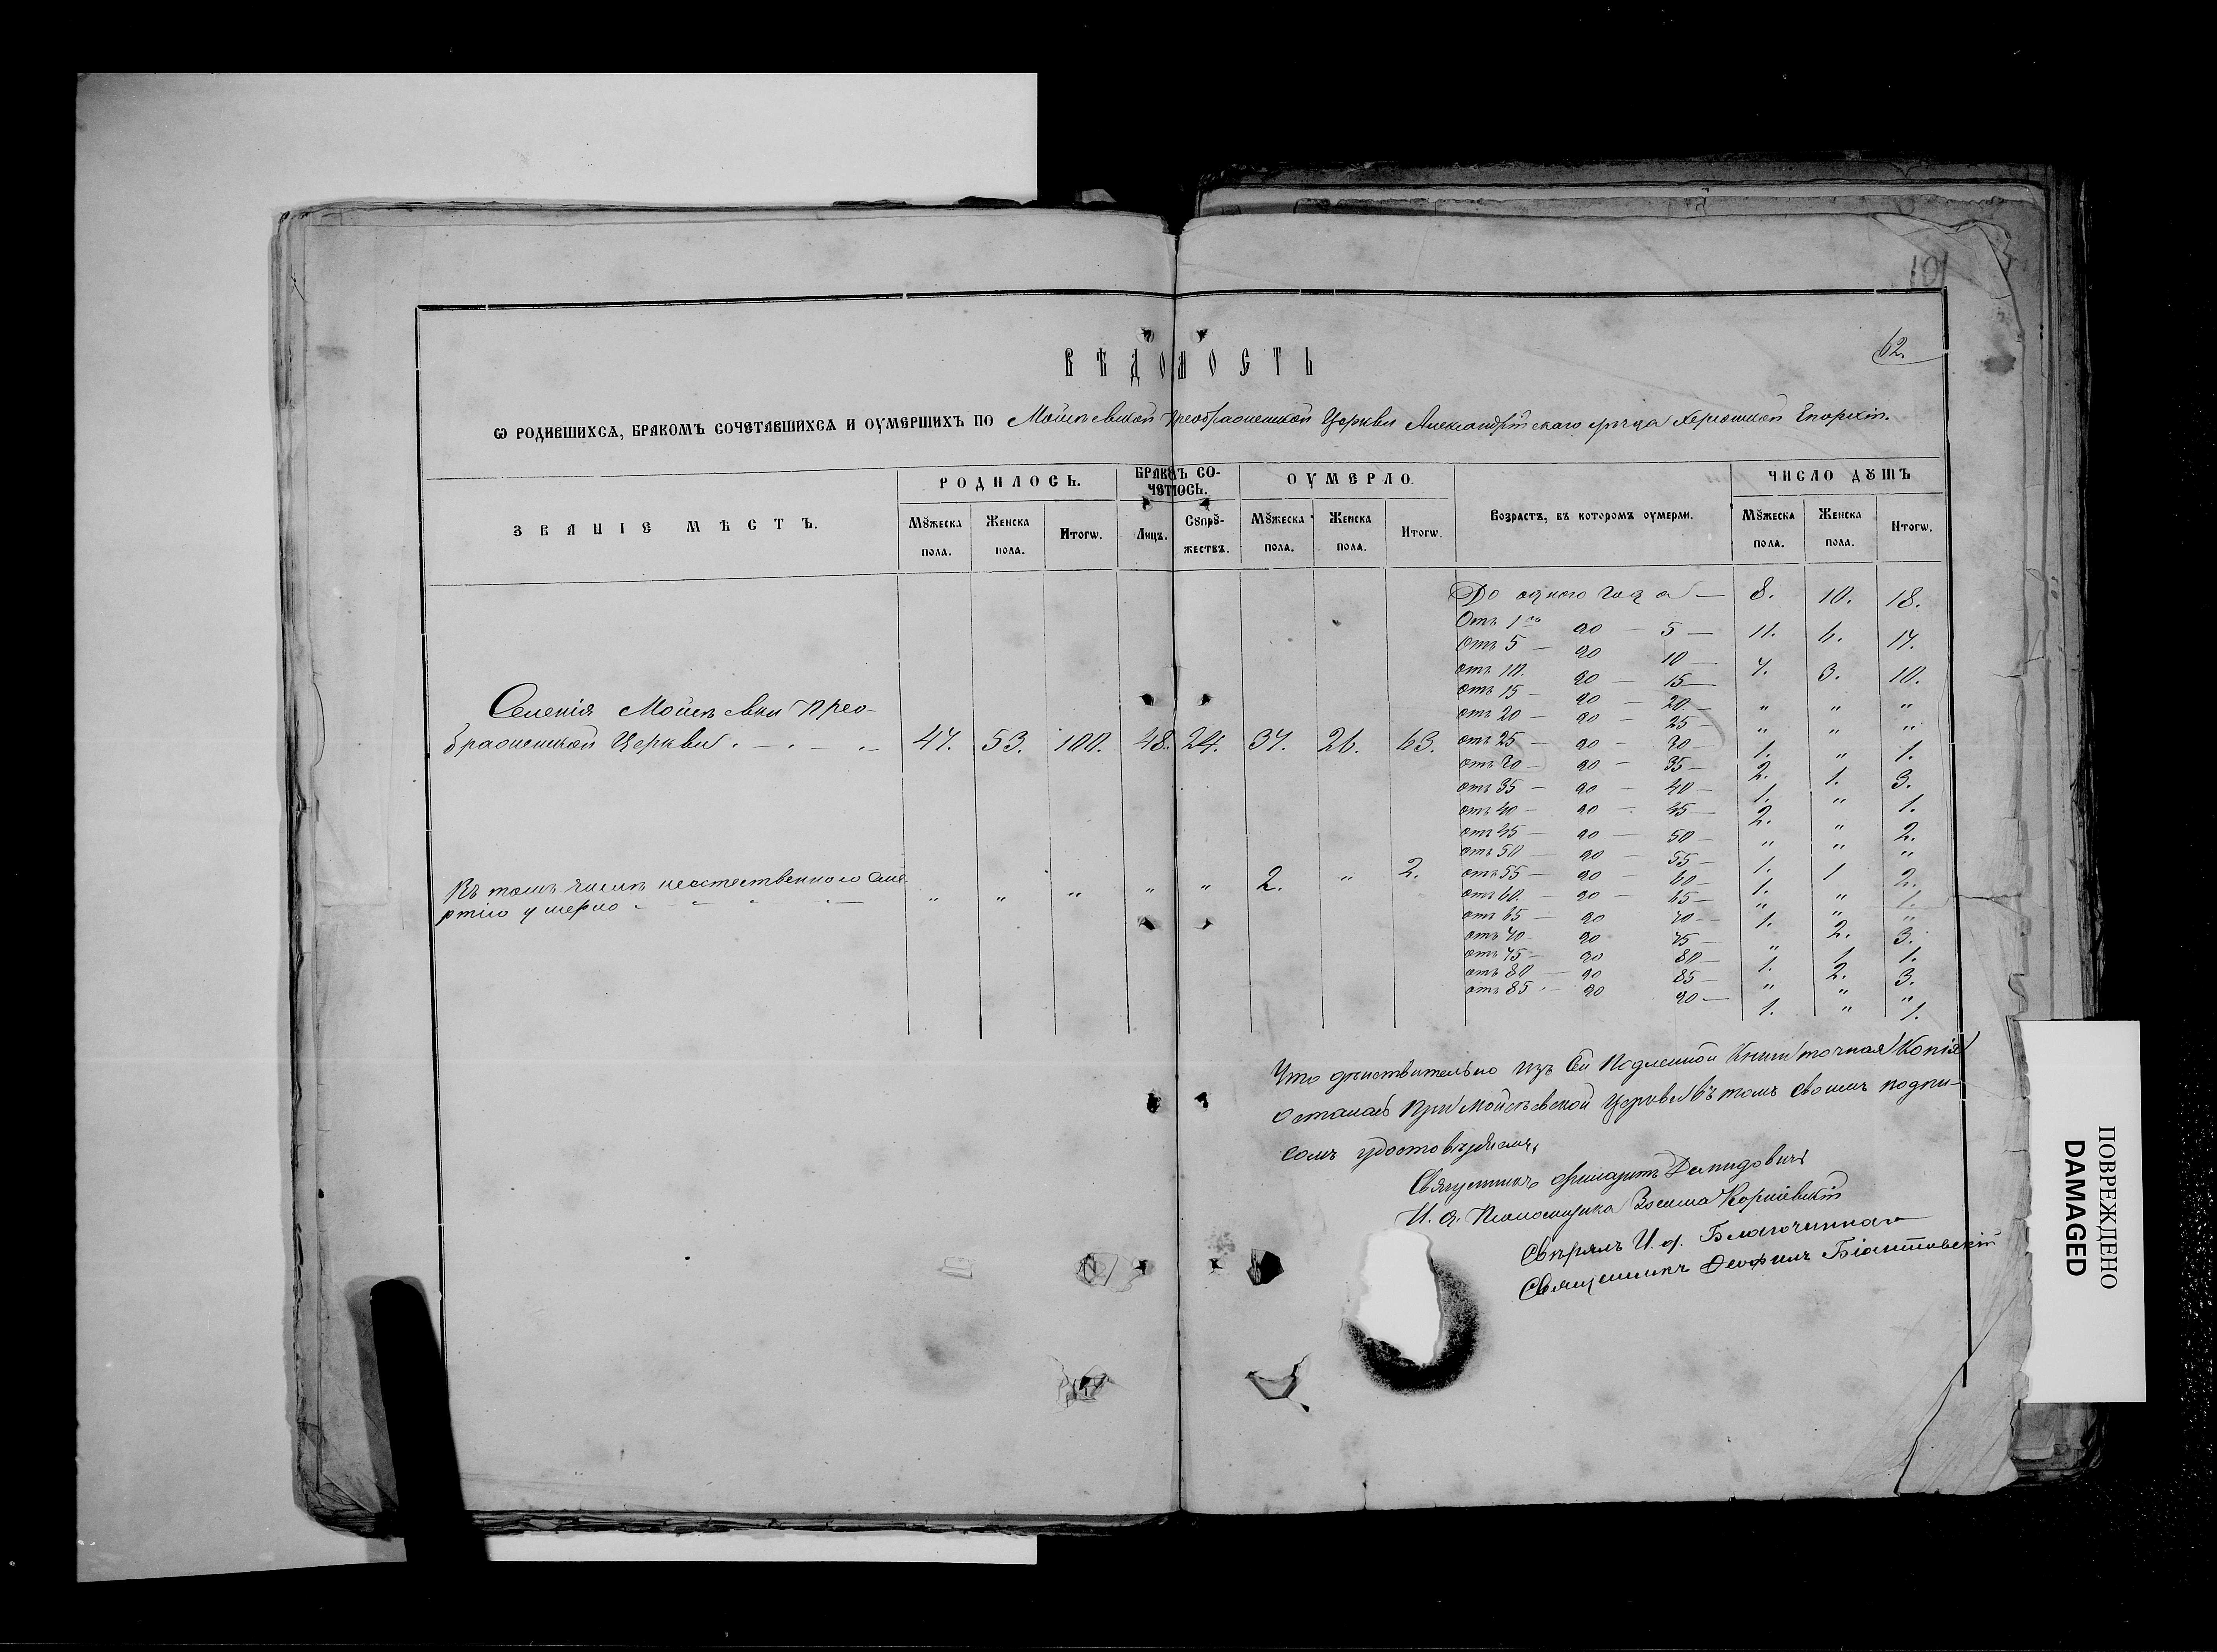 101
62.
ВѢДОМОСТЬ
Ѡ РОДИВШИХСѦ, БРАКОМЪ СОЧЕТАВШИХСѦ И ОУМЕРШИХЪ ПО Мойсѣевской Преображенской Церкви Александрійскаго уѣзда Херсонской Епархіи.
ЗВАНІЕ МѢСТЪ. РОДИЛОСЬ. БРАКОМЪ СОЧЕТЛОСЬ. ОУМЕРЛО. Возрастъ, въ которомъ оумерли. ЧИСЛО ДꙊШЪ
Мꙋжеска пола. Женска пола. Итогѡ. Лицъ. Сꙋпрꙋжествъ. Мꙋжеска пола. Женска пола. Итогѡ. Мꙋжеска пола. Женска пола. Итогѡ.
Селенія Мойсѣевки Прео-
браженской Церкви 47. 53. 100. 48. 24. 37. 26. 63.
Въ томъ числѣ неестественною сме-
ртію умерло " " " " " 2. " 2.
До одного года —
Отъ 1го до — 5 —
Отъ 5 — до 10 —
отъ 10. до — 15 —
отъ 15 — до — 20 —
отъ 20 — до — 25 —
отъ 25 — до — 30 —
отъ 30 — до — 35 —
отъ 35 — до — 40 —
отъ 40 — до — 45 —
отъ 45 — до — 50 —
отъ 50 до — 55 —
отъ 55 — до — 60 —
отъ 60. — до — 65 —
отъ 65 — до 70 —
отъ 70 — до 75 —
отъ 75 — до 80 —
отъ 80 — до 85 —
отъ 85 — до 90 —
8. 10. 18.
11. 6. 17.
7. 3. 10.
" " "
" " "
1. " 1.
2. 1. 3.
1. " 1.
2. " 2.
" " "
1. 1 2.
1. " 1.
" " "
1. 2. 3.
" 1 1.
1. 2. 3.
" " "
1. " 1.
Что дѣйствительно изъ сей Подленной Книги точная Копія
осталась при Мойсѣевской Церкви въ томъ своимъ подпи-
сомъ удостовѣряемъ,
Священникъ Демидовичъ
И. д. Псаломщика Зосима Корніевскій
Свѣрялъ И. д. Благочиннаго
Священникъ Ѳеофилъ
ПОВРЕЖДЕНО
DAMAGED